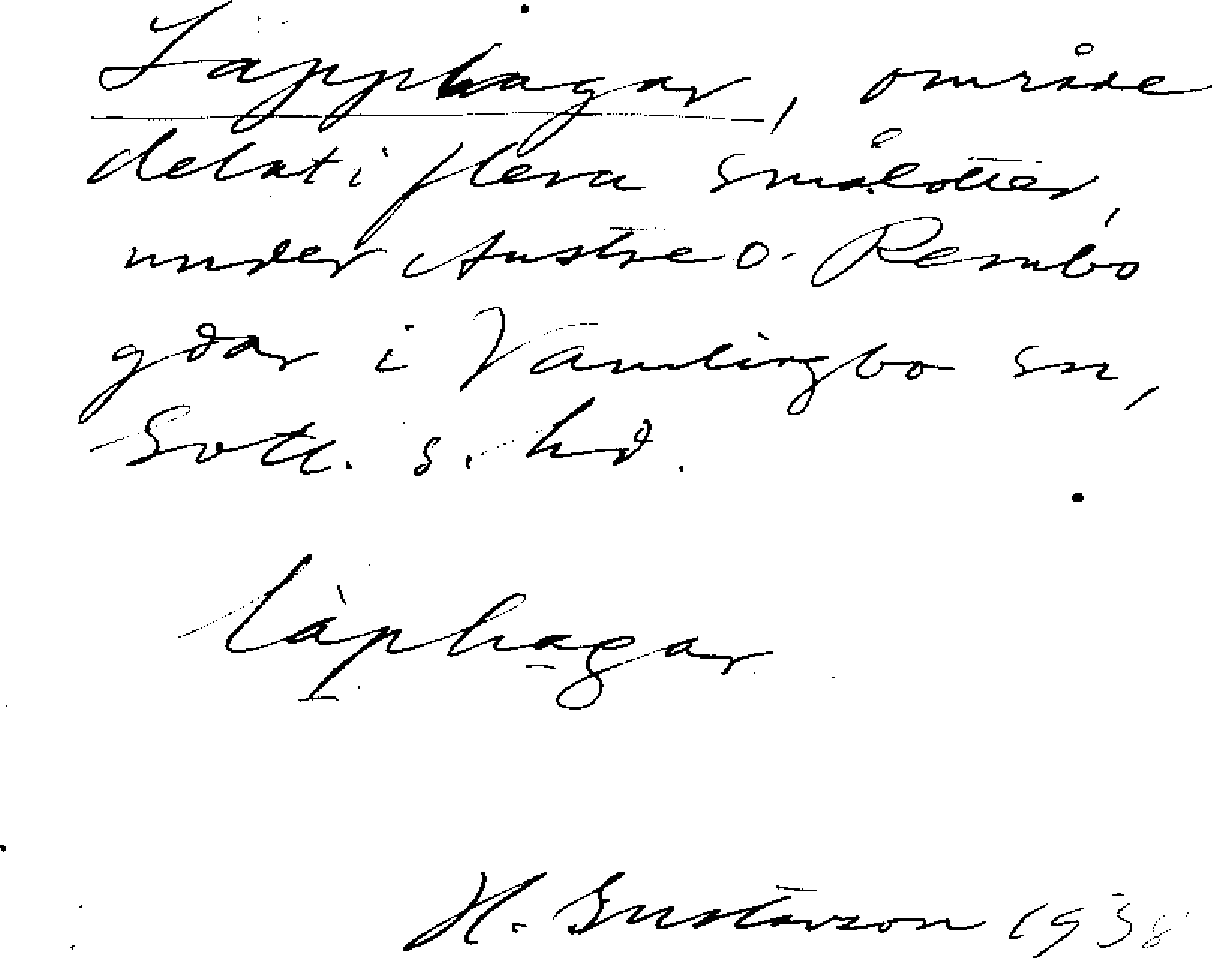 Lapphagar, område
delat i flera smålotter,
under Austre o. Rembo
gdar i Vamlingbo sn,
Gotl. s. hd.
làphagar
H. Gustavson 1938